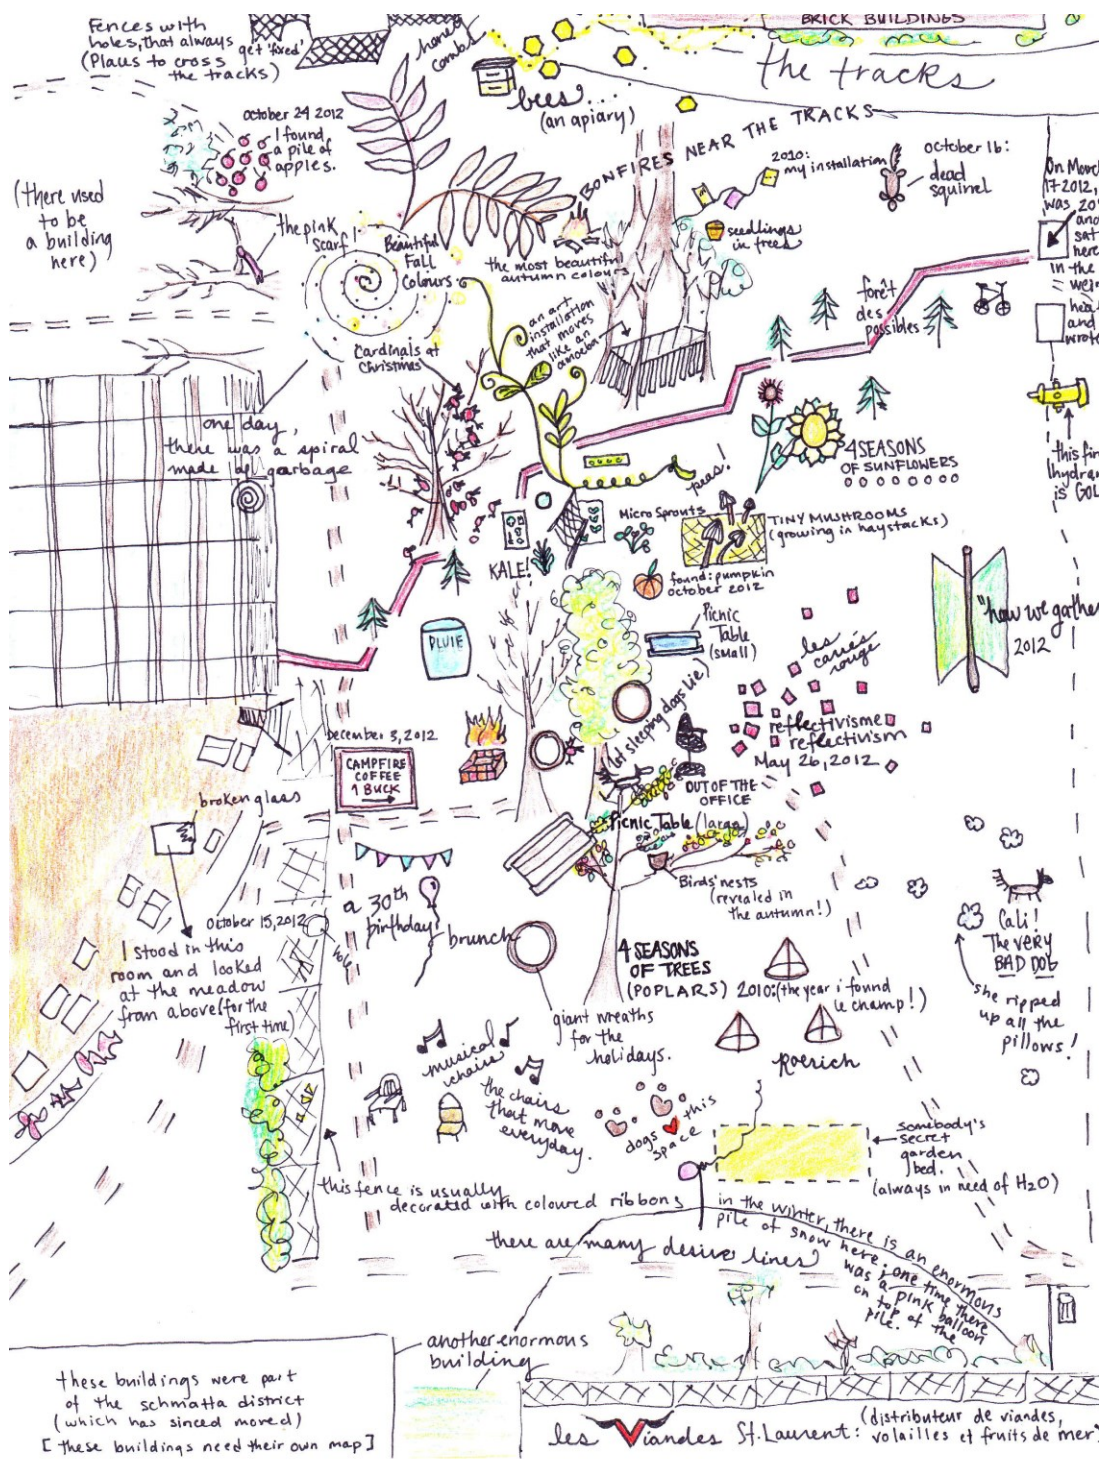 Fences with
holes, that always
get 'fixed'
(Places to cross
the tracks)
honey
combs
BRICK BUILDINGS
the tracks
bees....
(an apiary)
october 24 2012
I found
a pile of
apples.
(there used
to be
a building
here)
the pink
scarf!
Beautiful
Fall
Colours.
BONFIRES NEAR THE TRACKS
the most beautiful
autumn colours
2010:
my installation
seedlings
in trees
october 16:
dead
squirrel
On March
17 2012,
was 20°
and
sat
here
in the
hea
and
wrote
forêt
des
possibles
an art
installation
that moves
like an
amoeba
Cardinals at
Christmas
one day,
there was a spiral
made by garbage
4 SEASONS
OF SUNFLOWERS
this fire
hydrant
is GOL
peas!
Micro Sprouts
TINY MUSHROOMS
(growing in haystacks)
KALE!
found: pumpkin
october 2012
PLUIE
Picnic
Table
(small)
"how we gathe
2012
les
carrés
rouge
let sleeping dogs lie)
reflectivisme
reflectivism
May 26, 2012
December 3, 2012
CAMPFIRE
COFFEE
1 BUCK
OUT OF THE
OFFICE
Picnic Table (large)
broken glass
Birds' nests
(revealed in
the autumn!)
a 30th
birthday!
brunch
October 15, 2012
hole
I stood in this
room and looked
at the meadow
from above (for the
first time)
Cali!
The very
BAD DOG
she ripped
up all the
pillows!
4 SEASONS
OF TREES
(POPLARS)
2010: (the year i found
le champ!)
giant wreaths
for the
holidays.
Roerich
musical
chairs
the chairs
that move
everyday.
dogs
this
space
somebody's
secret
garden
bed.
(always in need of H2O)
this fence is usually
decorated with coloured ribbons
in the winter, there is an enormous
pile of snow here; one time there
was a pink balloon
on top of the
pile.
there are many desire lines
another enormous
building
these buildings were part
of the schmatta district
(which has sinced moved)
[these buildings need their own map]
les Viandes St. Laurent:
(distributeur de viandes,
volailles et fruits de mer)